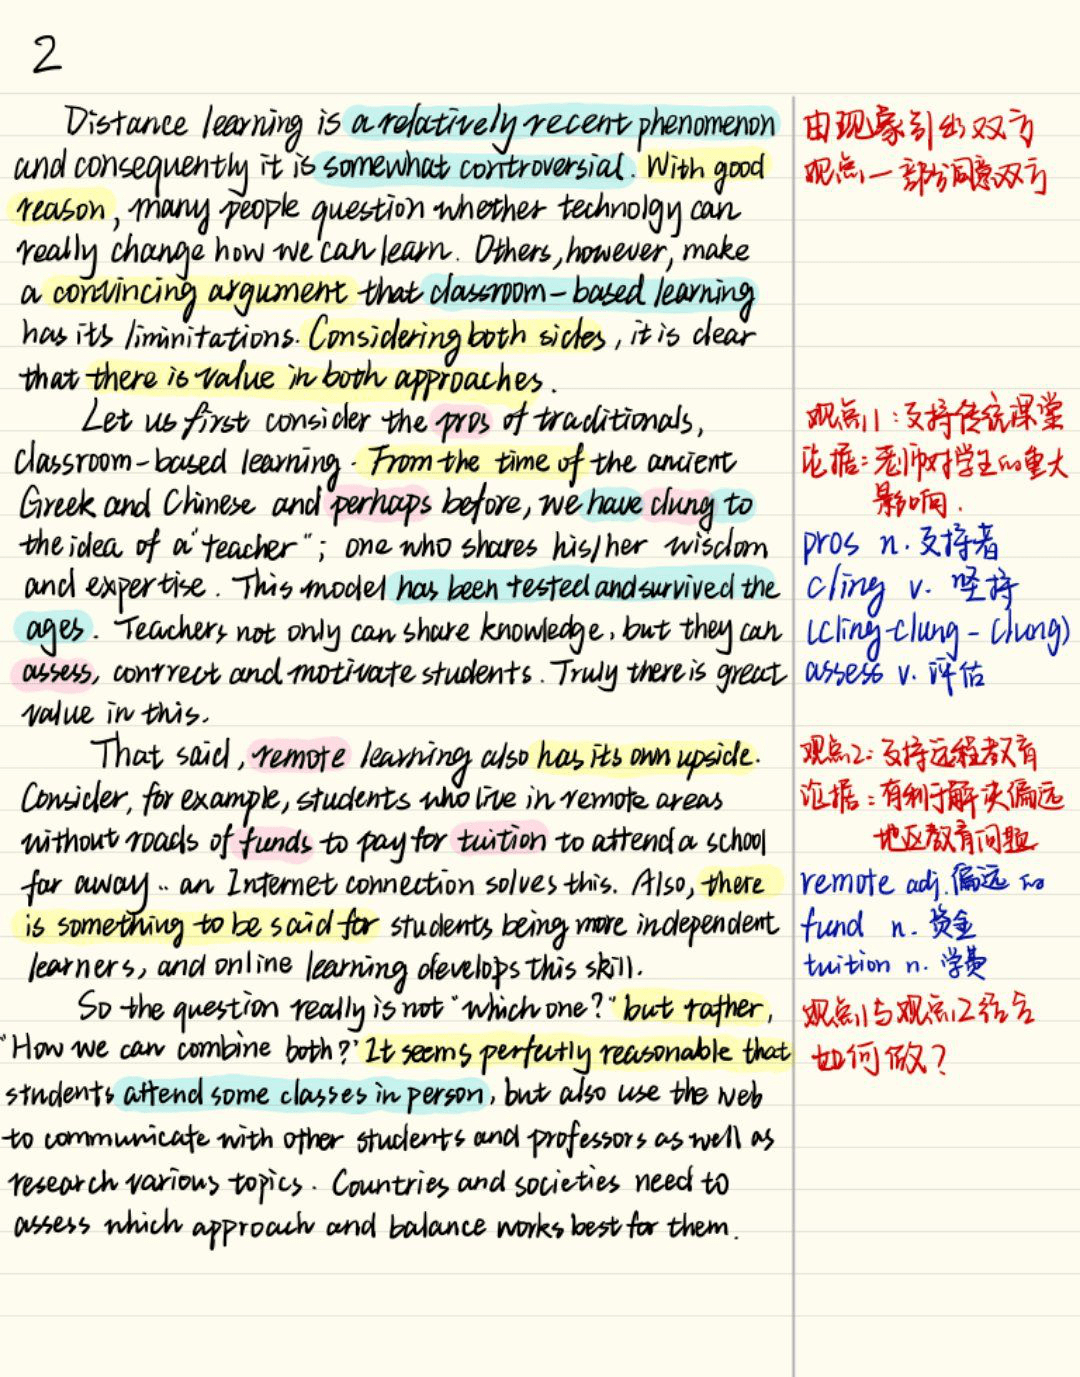 2
Distance learning is a relatively recent phenomenon
and consequently it is somewhat controversial. With good
reason, many people question whether technolgy can
really change how we can learn. Others, however, make
a convincing argument that classroom-based learning
has its liminitations. Considering both sides, it is clear
that there is value in both approaches.
Let us first consider the pros of traditionals,
classroom-based learning. From the time of the ancient
Greek and Chinese and perhaps before, we have clung to
the idea of a "teacher"; one who shares his/her wisdom
and expertise. This model has been tested and survived the
ages. Teachers not only can share knowledge, but they can
assess, contrect and motivate students. Truly there is great
value in this.
That said, remote learning also has its own upside.
Consider, for example, students who live in remote areas
without roads of funds to pay for tuition to attend a school
far away.. an Internet connection solves this. Also, there
is something to be said for students being more independent
learners, and online learning develops this skill.
So the question really is not "which one?" but rather,
"How we can combine both?" It seems perfectly reasonable that
students attend some classes in person, but also use the web
to communicate with other students and professors as well as
research various topics. Countries and societies need to
assess which approach and balance works best for them.
由现象引出双方
观点一部分同意双方
观点1：支持传统课堂
论据：老师对学生的重大
影响.
pros n. 支持者
cling v. 坚持
(cling-clung-clung)
assess v. 评估
观点2：支持远程教育
论据：有利于解决偏远
地区教育问题
remote adj. 偏远的
fund n. 资金
tuition n. 学费
观点1与观点2结合
如何做？